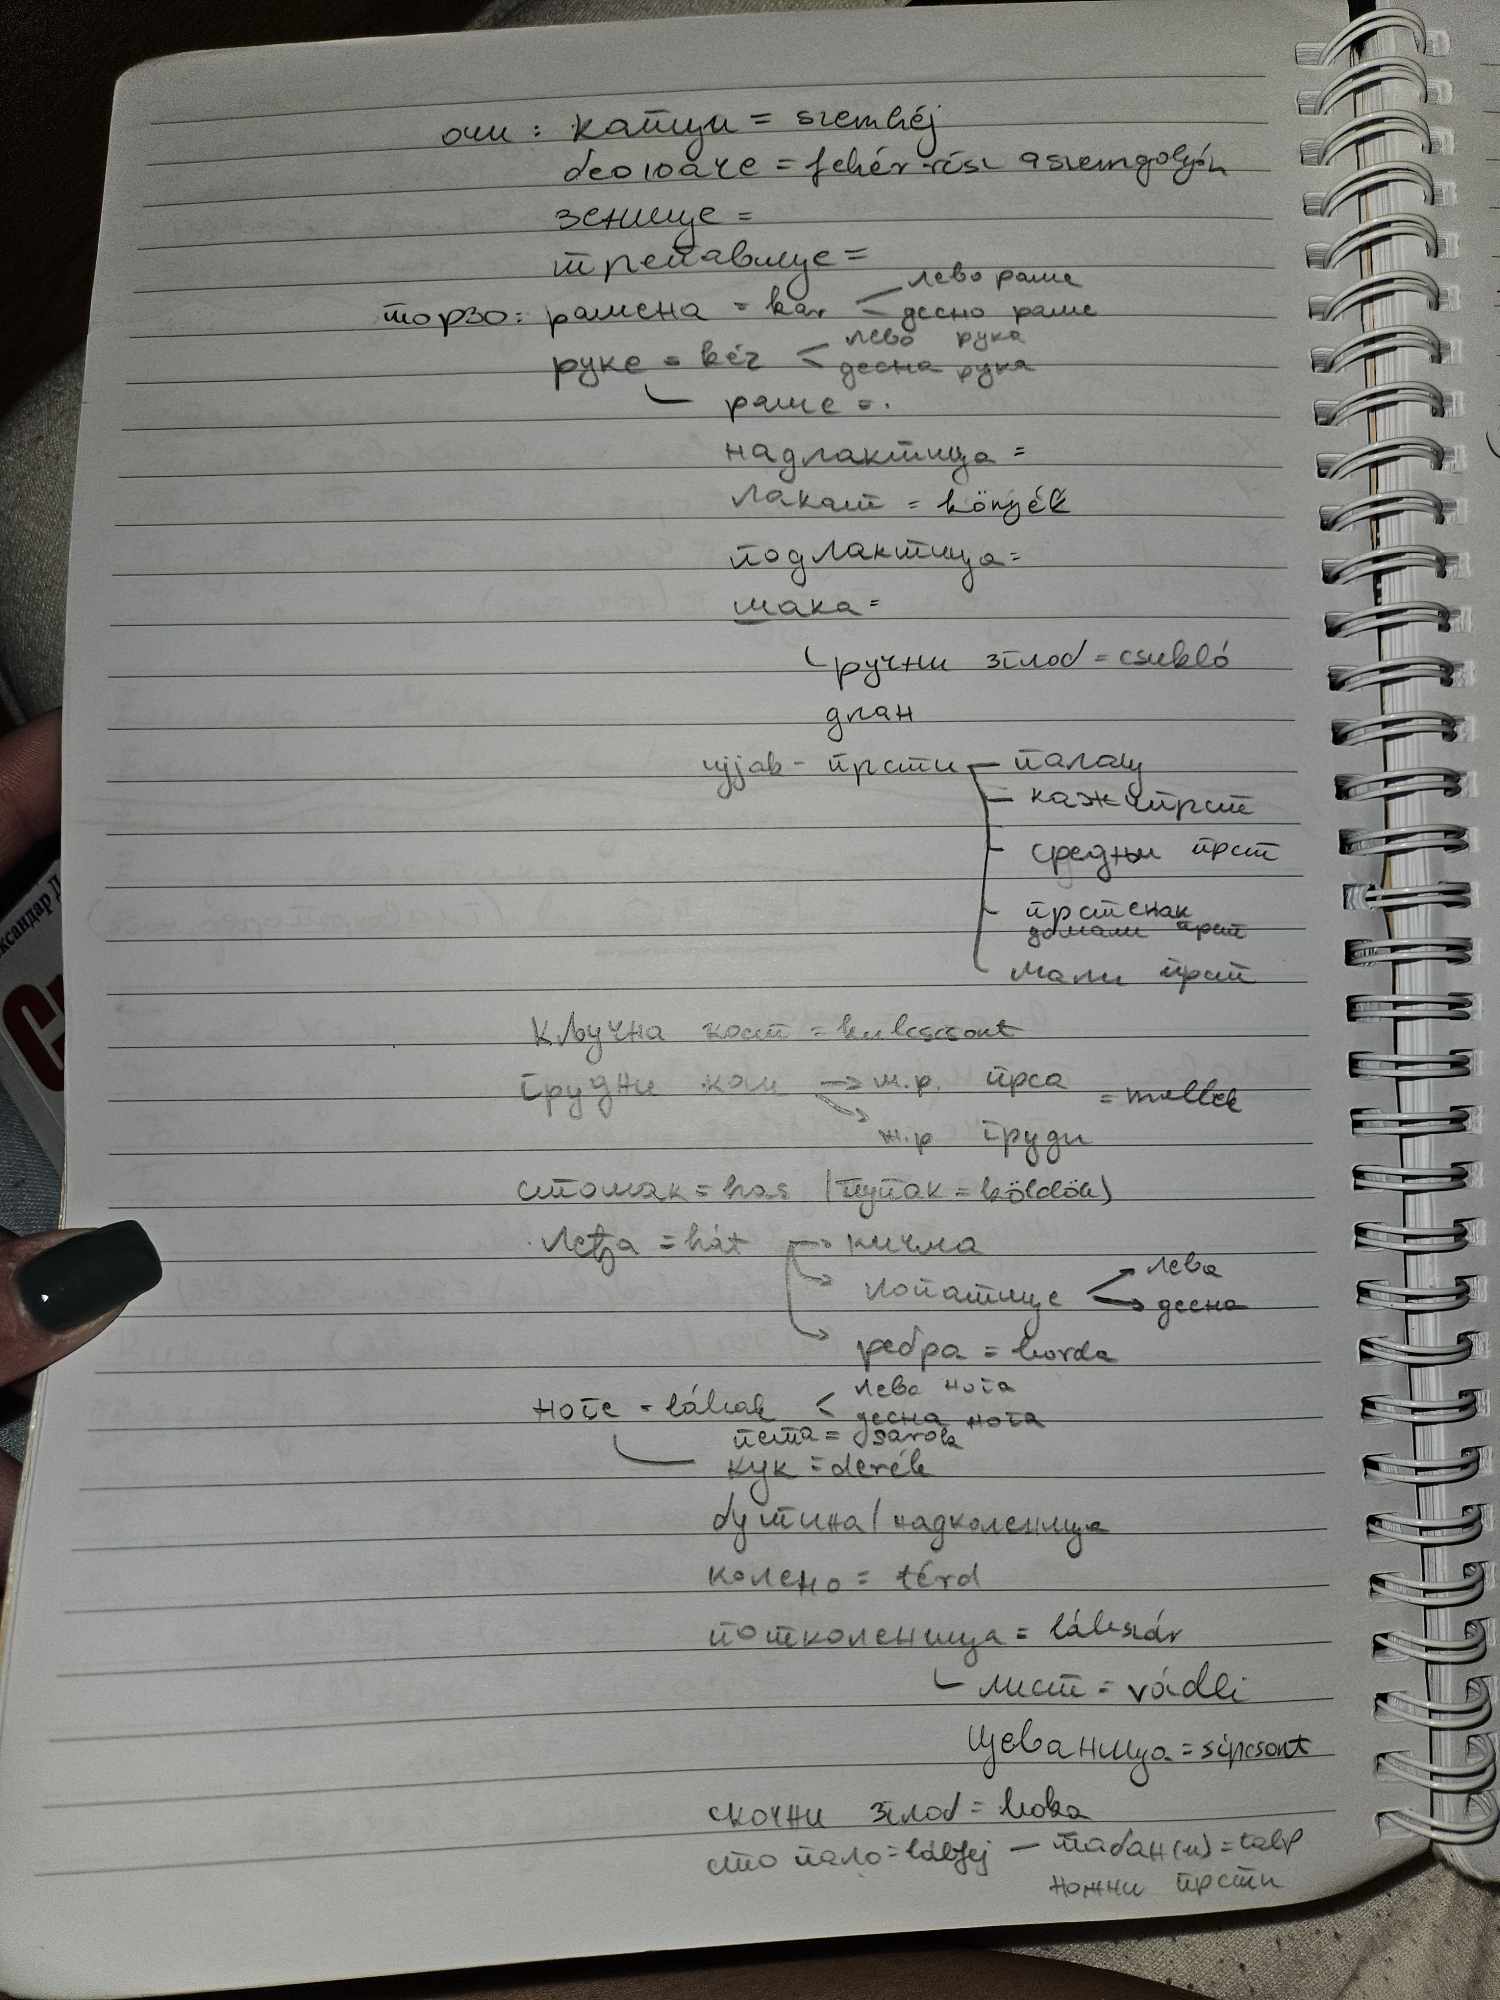 очи: капци = szemhéj
беоњаче = fehér rész a szemgolyón
зенице =
трепавице =
торзо: рамена = kar < лево раме
десно раме
руке = kéz < лева рука
десна рука
раме =
надлактица =
лакат = könyék
подлактица =
шака =
ручни зглоб = csukló
длан
ujjak - прсти - палац
- кажипрст
- средњи прст
- прстенак
домали прст
мали прст
Кључна кост = kulcscsont
грудни кош → м.р. прса = mellek
ж.р груди
стомак = has (пупак = köldök)
леђа = hát → кичма
лопатице → лева
→ десна
ребра = borda
ноге = lábak < лева нога
десна нога
пета = sarok
кук = derék
бутина / надколеница
колено = térd
потколеница = lábszár
лист = vádli
цеваница = sípcsont
скочни зглоб = boka
стопало = lábfej - табан(и) = talp
ножни прсти
ксандар Д